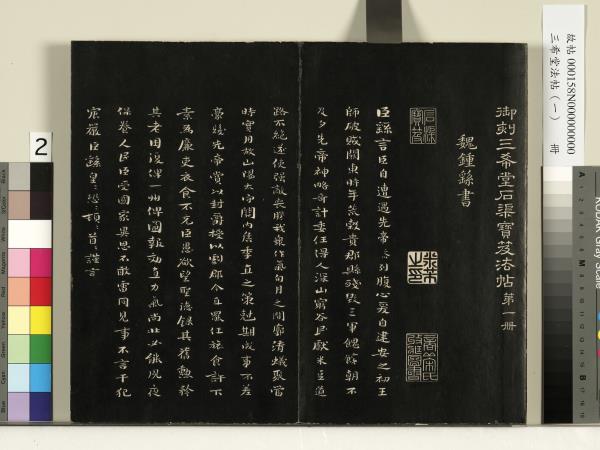 故帖 000158N000000000
三希堂法帖（一） 冊
御刻三希堂石渠寶笈法帖第一冊
魏鍾繇書
石渠寶笈
臣繇言臣自遭遇先帝忝列腹心爰自建安之初王
師破賊關東時年荒穀貴郡縣殘毀三軍餽饟朝不
及夕先帝神略奇計委任得人深山窮谷民獻米豆道
路不絕遂使強敵喪膽我衆作氣旬月之間廓清蟻聚當
時實用故山陽太守關內侯季直之策剋期成事不差
豪髮先帝賞以封爵授以劇郡今直罷任旅食許下
素為廉吏衣食不充臣愚欲望聖德錄其舊勳矜
其老困復俾一州俾圖報效直力氣尚壯必能夙夜
保養人民臣受國家異恩不敢雷同見事不言干犯
宸嚴臣繇皇〻恐〻頓〻首〻謹言
2
KODAK Gray Scale
Black
White
Magenta
Red
Yellow
Green
Cyan
Blue
A
M
B